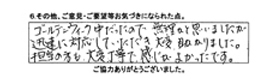 6.その他、ご意見・ご要望等お気づきになられた点。
ゴールデンウィーク中だったので無理かと思いましたが
迅速に対応していただき大変助かりました。
担当の方も大変丁寧で感じがよかったです。
ご協力ありがとうございました。